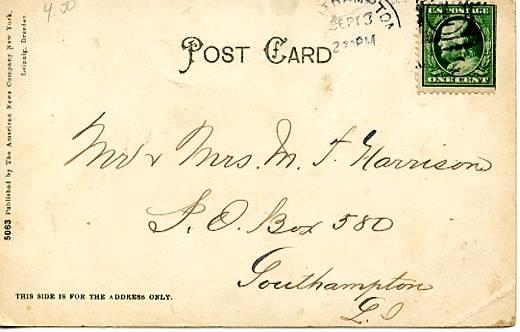 4.50
THAMPTON
SEPT 3
2 PM
U.S. POSTAGE
ONE CENT
POST CARD
Mr & Mrs. M. F. Harrison
P. O. Box 580
Southampton
L. I
THIS SIDE IS FOR THE ADDRESS ONLY.
5063 Published by The American News Company New York.
Leipzig, Dresden.